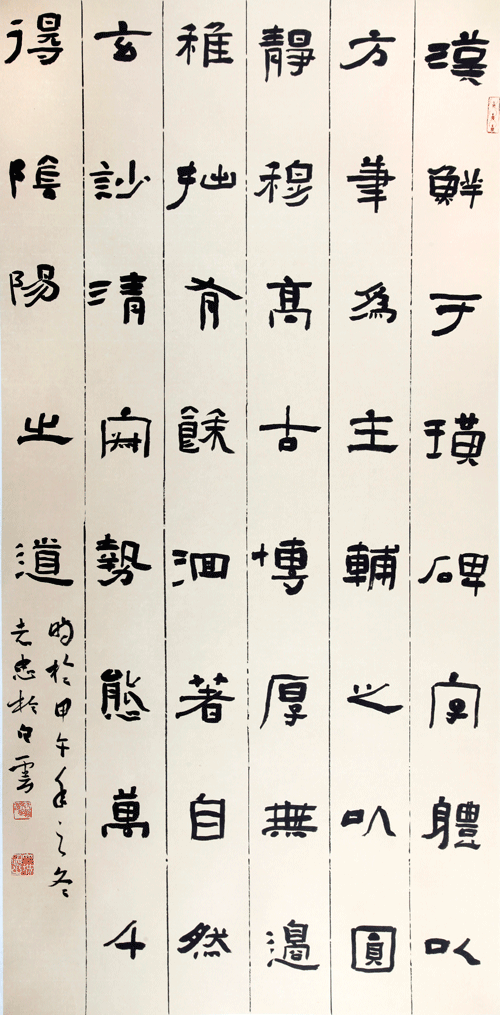 漢鮮于璜碑字體以
方筆爲主輔之以圓
靜穆高古博厚無邊
稚拙有餘洄著自然
玄妙清寂勢態萬千
得陰陽之道
時於甲午年之冬
忠於白雲